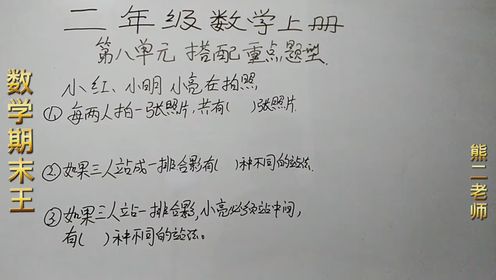 二年级数学上册
第八单元 搭配 重点题型
小红、小明 小亮在拍照
①每两人拍一张照片,共有( )张照片.
②如果三人站成一排合影有( )种不同的站法.
③如果三人站一排合影,小亮必须站中间,
有( )种不同的站法。
数学期末王
熊二老师